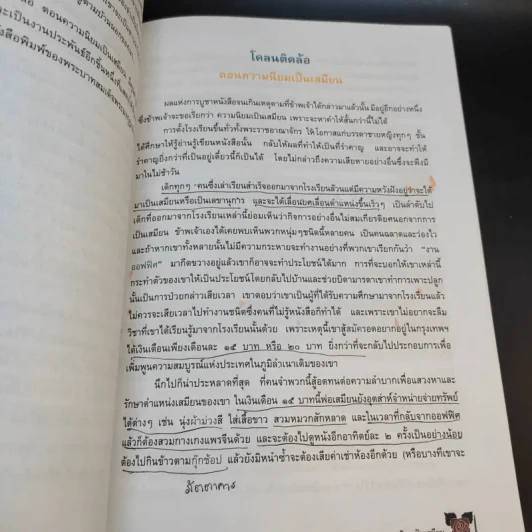 โคลนติดล้อ
ตอนความนิยมเป็นเสมียน
ผลแห่งการบูชาหนังสือจนเกินเหตุตามที่ข้าพเจ้าได้กล่าวมาแล้วนั้น มีอยู่อีกอย่างหนึ่ง
ซึ่งข้าพเจ้าจะขอเรียกว่า ความนิยมเป็นเสมียน เพราะจะหาคำให้สั้นกว่านี้ไม่ได้
การตั้งโรงเรียนขึ้นทั่วทั้งพระราชอาณาจักร ให้โอกาสแก่บรรดาชายหญิงทุกๆ ชั้น
ได้ศึกษาให้รู้อ่านรู้เขียนหนังสือนั้น กลับให้ผลที่ทำให้เป็นที่รำคาญ และอาจจะทำให้
รำคาญยิ่งกว่าที่เป็นอยู่เดี๋ยวนี้ก็เป็นได้ โดยไม่กล่าวถึงความเสียหายอย่างอื่นซึ่งจะพึงมี
มาในไม่ช้าวัน
เด็กทุกๆ คนซึ่งเล่าเรียนสำเร็จออกมาจากโรงเรียนล้วนแต่มีความหวังฝังอยู่ว่าจะได้
มาเป็นเสมียนหรือเป็นเลขานุการ และจะได้เลื่อนยศเลื่อนตำแหน่งขึ้นเร็วๆ เป็นลำดับไป
เด็กที่ออกมาจากโรงเรียนเหล่านี้ย่อมเห็นว่ากิจการอย่างอื่นไม่สมเกียรติยศนอกจากการ
เป็นเสมียน ข้าพเจ้าเองได้เคยพบเห็นพวกหนุ่มๆชนิดนี้หลายคน เป็นคนฉลาดและว่องไว
และถ้าหากเขาทั้งหลายนั้นไม่มีความกระหายจะทำงานอย่างที่พวกเขาเรียกกันว่า “งาน
ออฟฟิศ” มากีดขวางอยู่แล้วเขาก็อาจจะทำประโยชน์ได้มาก การที่จะบอกให้เขาเหล่านี้
กระทำตัวของเขาให้เป็นประโยชน์โดยกลับไปบ้านและช่วยบิดามารดาเขาทำการเพาะปลูก
นั้นเป็นการป่วยกล่าวเสียเวลา เขาตอบว่าเขาเป็นผู้ที่ได้รับความศึกษามาจากโรงเรียนแล้ว
ไม่ควรจะเสียเวลาไปทำงานชนิดซึ่งคนที่ไม่รู้หนังสือก็ทำได้ และเพราะเขาไม่อยากจะลืม
วิชาที่เขาได้เรียนรู้มาจากโรงเรียนนั้นด้วย เพราะเหตุนี้เขาสู้สมัครอดอยากอยู่ในกรุงเทพฯ
ได้เงินเดือนเพียงเดือนละ ๑๕ บาท หรือ ๒๐ บาท ยิ่งกว่าที่จะกลับไปประกอบการเพื่อ
เพิ่มพูนความสมบูรณ์แห่งประเทศในภูมิลำเนาเดิมของเขา
นึกไปก็น่าประหลาดที่สุด ที่คนจำพวกนี้สู้อดทนต่อความลำบากเพื่อแสวงหาและ
รักษาตำแหน่งเสมียนของเขา ในเงินเดือน ๑๕ บาทนี้พ่อเสมียนยังอุตส่าห์จำหน่ายจ่ายทรัพย์
ได้ต่างๆ เช่น นุ่งผ้าม่วงสี ใส่เสื้อขาว สวมหมวกสักหลาด และในเวลาที่กลับจากออฟฟิศ
แล้วก็ต้องสวมกางเกงแพรจีนด้วย และจะต้องไปดูหนังอีกอาทิตย์ละ ๒ ครั้งเป็นอย่างน้อย
ต้องไปกินข้าวตามกุ๊กช้อป แล้วยังมิหนำซ้ำจะต้องเสียค่าเช่าห้องอีกด้วย (หรือบางทีเขาจะ
ภัตตาคาร